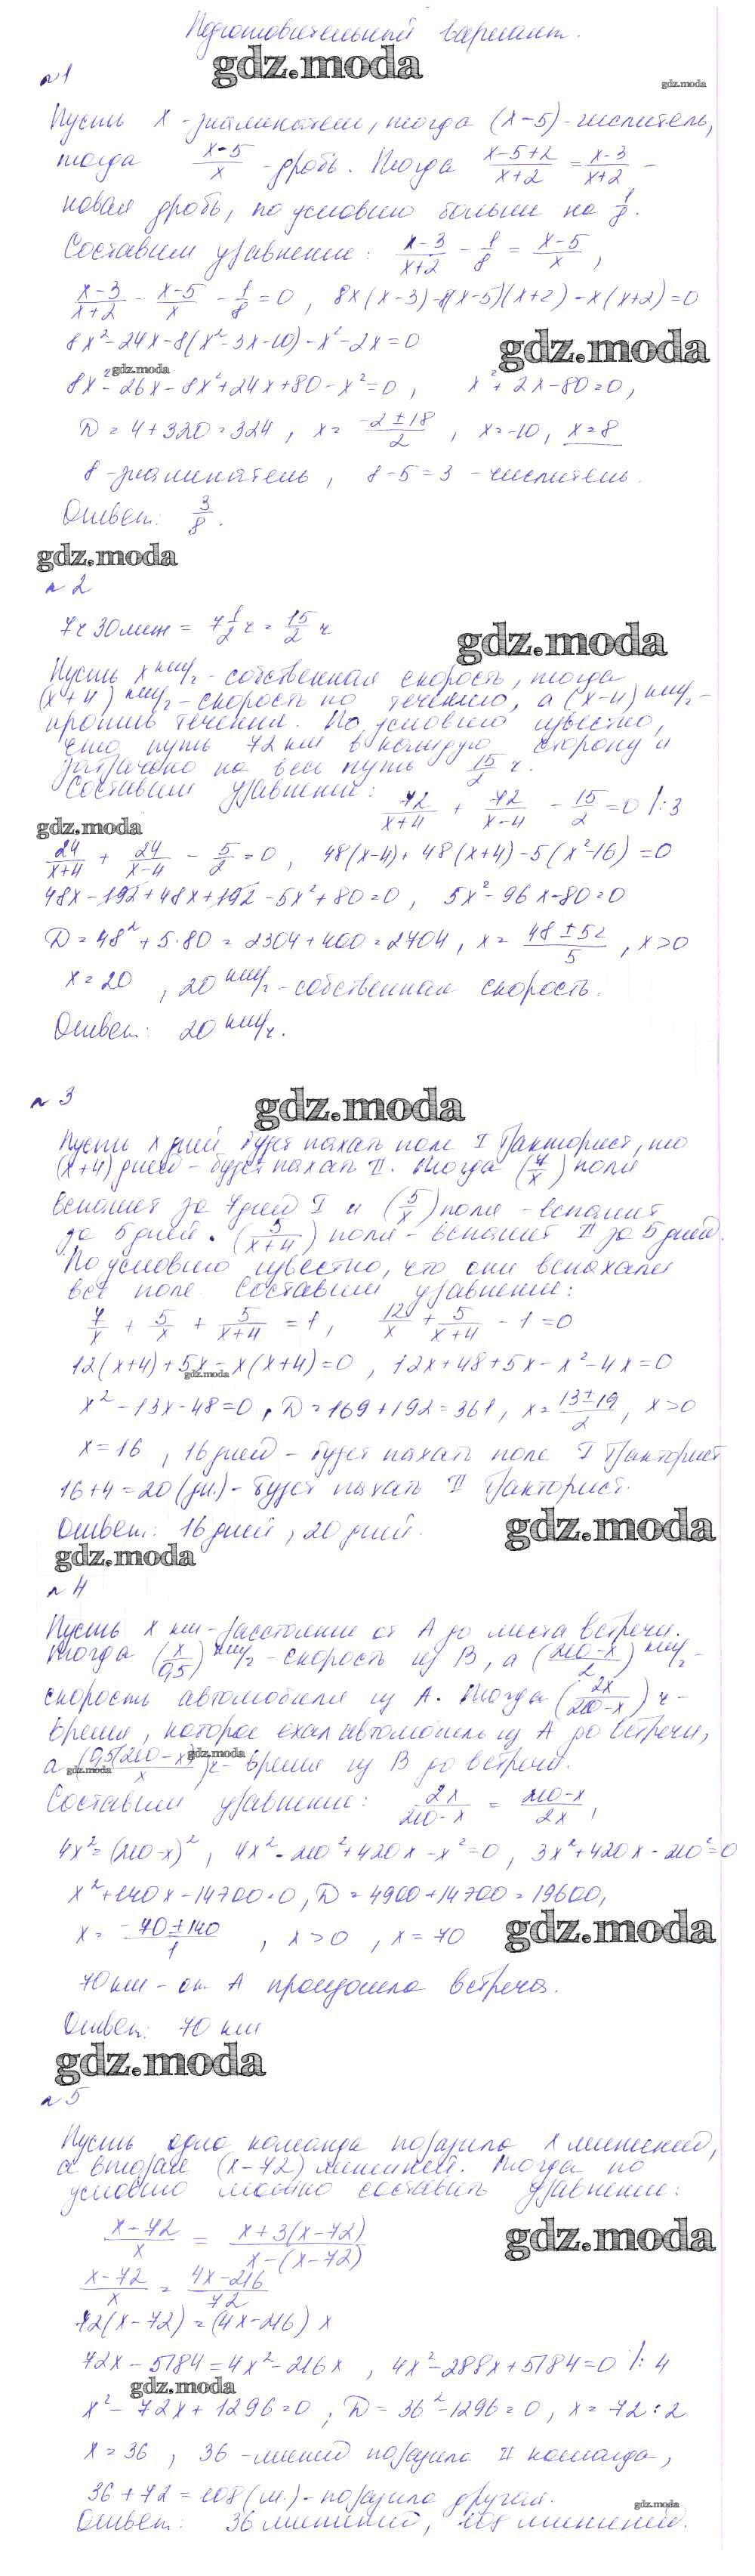 Подготовительный вариант.
gdz.moda
№1
gdz.moda
Пусть x - знаменатель, тогда (x-5) - числитель,
тогда (x-5)/x - дробь. Тогда (x-5+2)/(x+2) = (x-3)/(x+2) -
новая дробь, по условию больше на 1/8.
Составим уравнение: (x-3)/(x+2) - 1/8 = (x-5)/x,
(x-3)/(x+2) - (x-5)/x - 1/8 = 0, 8x(x-3)-8(x-5)(x+2)-x(x+2)=0
8x²-24x-8(x²-3x-10)-x²-2x=0
gdz.moda
gdz.moda
8x²-26x-8x²+24x+80-x²=0, x²+2x-80=0,
D=4+320=324, x=(-2±18)/2, x=-10, x=8
8 - знаменатель, 8-5=3 - числитель.
Ответ: 3/8.
gdz.moda
№2
7ч 30мин = 7 1/2 ч = 15/2 ч
gdz.moda
Пусть x км/ч - собственная скорость, тогда
(x+4) км/ч - скорость по течению, а (x-4) км/ч -
против течения. По условию известно,
что путь 72 км в каждую сторону и
затрачено на весь путь 15/2 ч.
Составим уравнение: 72/(x+4) + 72/(x-4) - 15/2 = 0 |:3
gdz.moda
24/(x+4) + 24/(x-4) - 5/2 = 0, 48(x-4)+48(x+4)-5(x²-16)=0
48x-192+48x+192-5x²+80=0, 5x²-96x-80=0
D=48²+5·80=2304+400=2704, x=(48±52)/5, x>0
x=20, 20 км/ч - собственная скорость.
Ответ: 20 км/ч.
№3
gdz.moda
Пусть x дней будет пахать поле I тракторист, то
(x+4) дней - будет пахать II. Тогда (7/x) поля
вспашет за 7 дней I и (5/x) поля - вспашет
за 5 дней. (5/(x+4)) поля - вспашет II за 5 дней.
По условию известно, что они вспахали
всё поле. Составим уравнение:
7/x + 5/x + 5/(x+4) = 1, 12/x + 5/(x+4) - 1 = 0
12(x+4)+5x-x(x+4)=0, 12x+48+5x-x²-4x=0
gdz.moda
x²-13x-48=0, D=169+192=361, x=(13±19)/2, x>0
x=16, 16 дней - будет пахать поле I тракторист
16+4=20 (дн.) - будет пахать II тракторист.
Ответ: 16 дней, 20 дней.
gdz.moda
gdz.moda
№4
Пусть x км - расстояние от A до места встречи.
Тогда (x/0,5) км/ч - скорость из B, а ((210-x)/2) км/ч -
скорость автомобиля из A. Тогда (2x/(210-x)) ч -
время, которое ехал автомобиль из A до встречи,
а (0,5(210-x)/x) ч - время из B до встречи.
gdz.moda
gdz.moda
Составим уравнение: 2x/(210-x) = (210-x)/2x,
4x²=(210-x)², 4x²-210²+420x-x²=0, 3x²+420x-210²=0
x²+140x-14700=0, D=4900+14700=19600,
x=(-70±140)/1, x>0, x=70
gdz.moda
70 км - от A произошла встреча.
Ответ: 70 км
gdz.moda
№5
Пусть одна команда поразила x мишеней,
а вторая (x-72) мишеней. Тогда по
условию можно составить уравнение:
(x-72)/x = (x+3(x-72))/(x-(x-72))
gdz.moda
(x-72)/x = (4x-216)/72
72(x-72)=(4x-216)x
72x-5184=4x²-216x, 4x²-288x+5184=0 |:4
gdz.moda
x²-72x+1296=0, D=36²-1296=0, x=72:2
x=36, 36 - мишеней поразила II команда,
36+72=108 (м.) - поразила другая.
gdz.moda
Ответ: 36 мишеней, 108 мишеней.